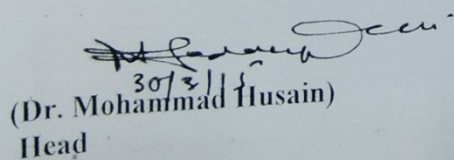 30/3/15
(Dr. Mohammad Husain)
Head